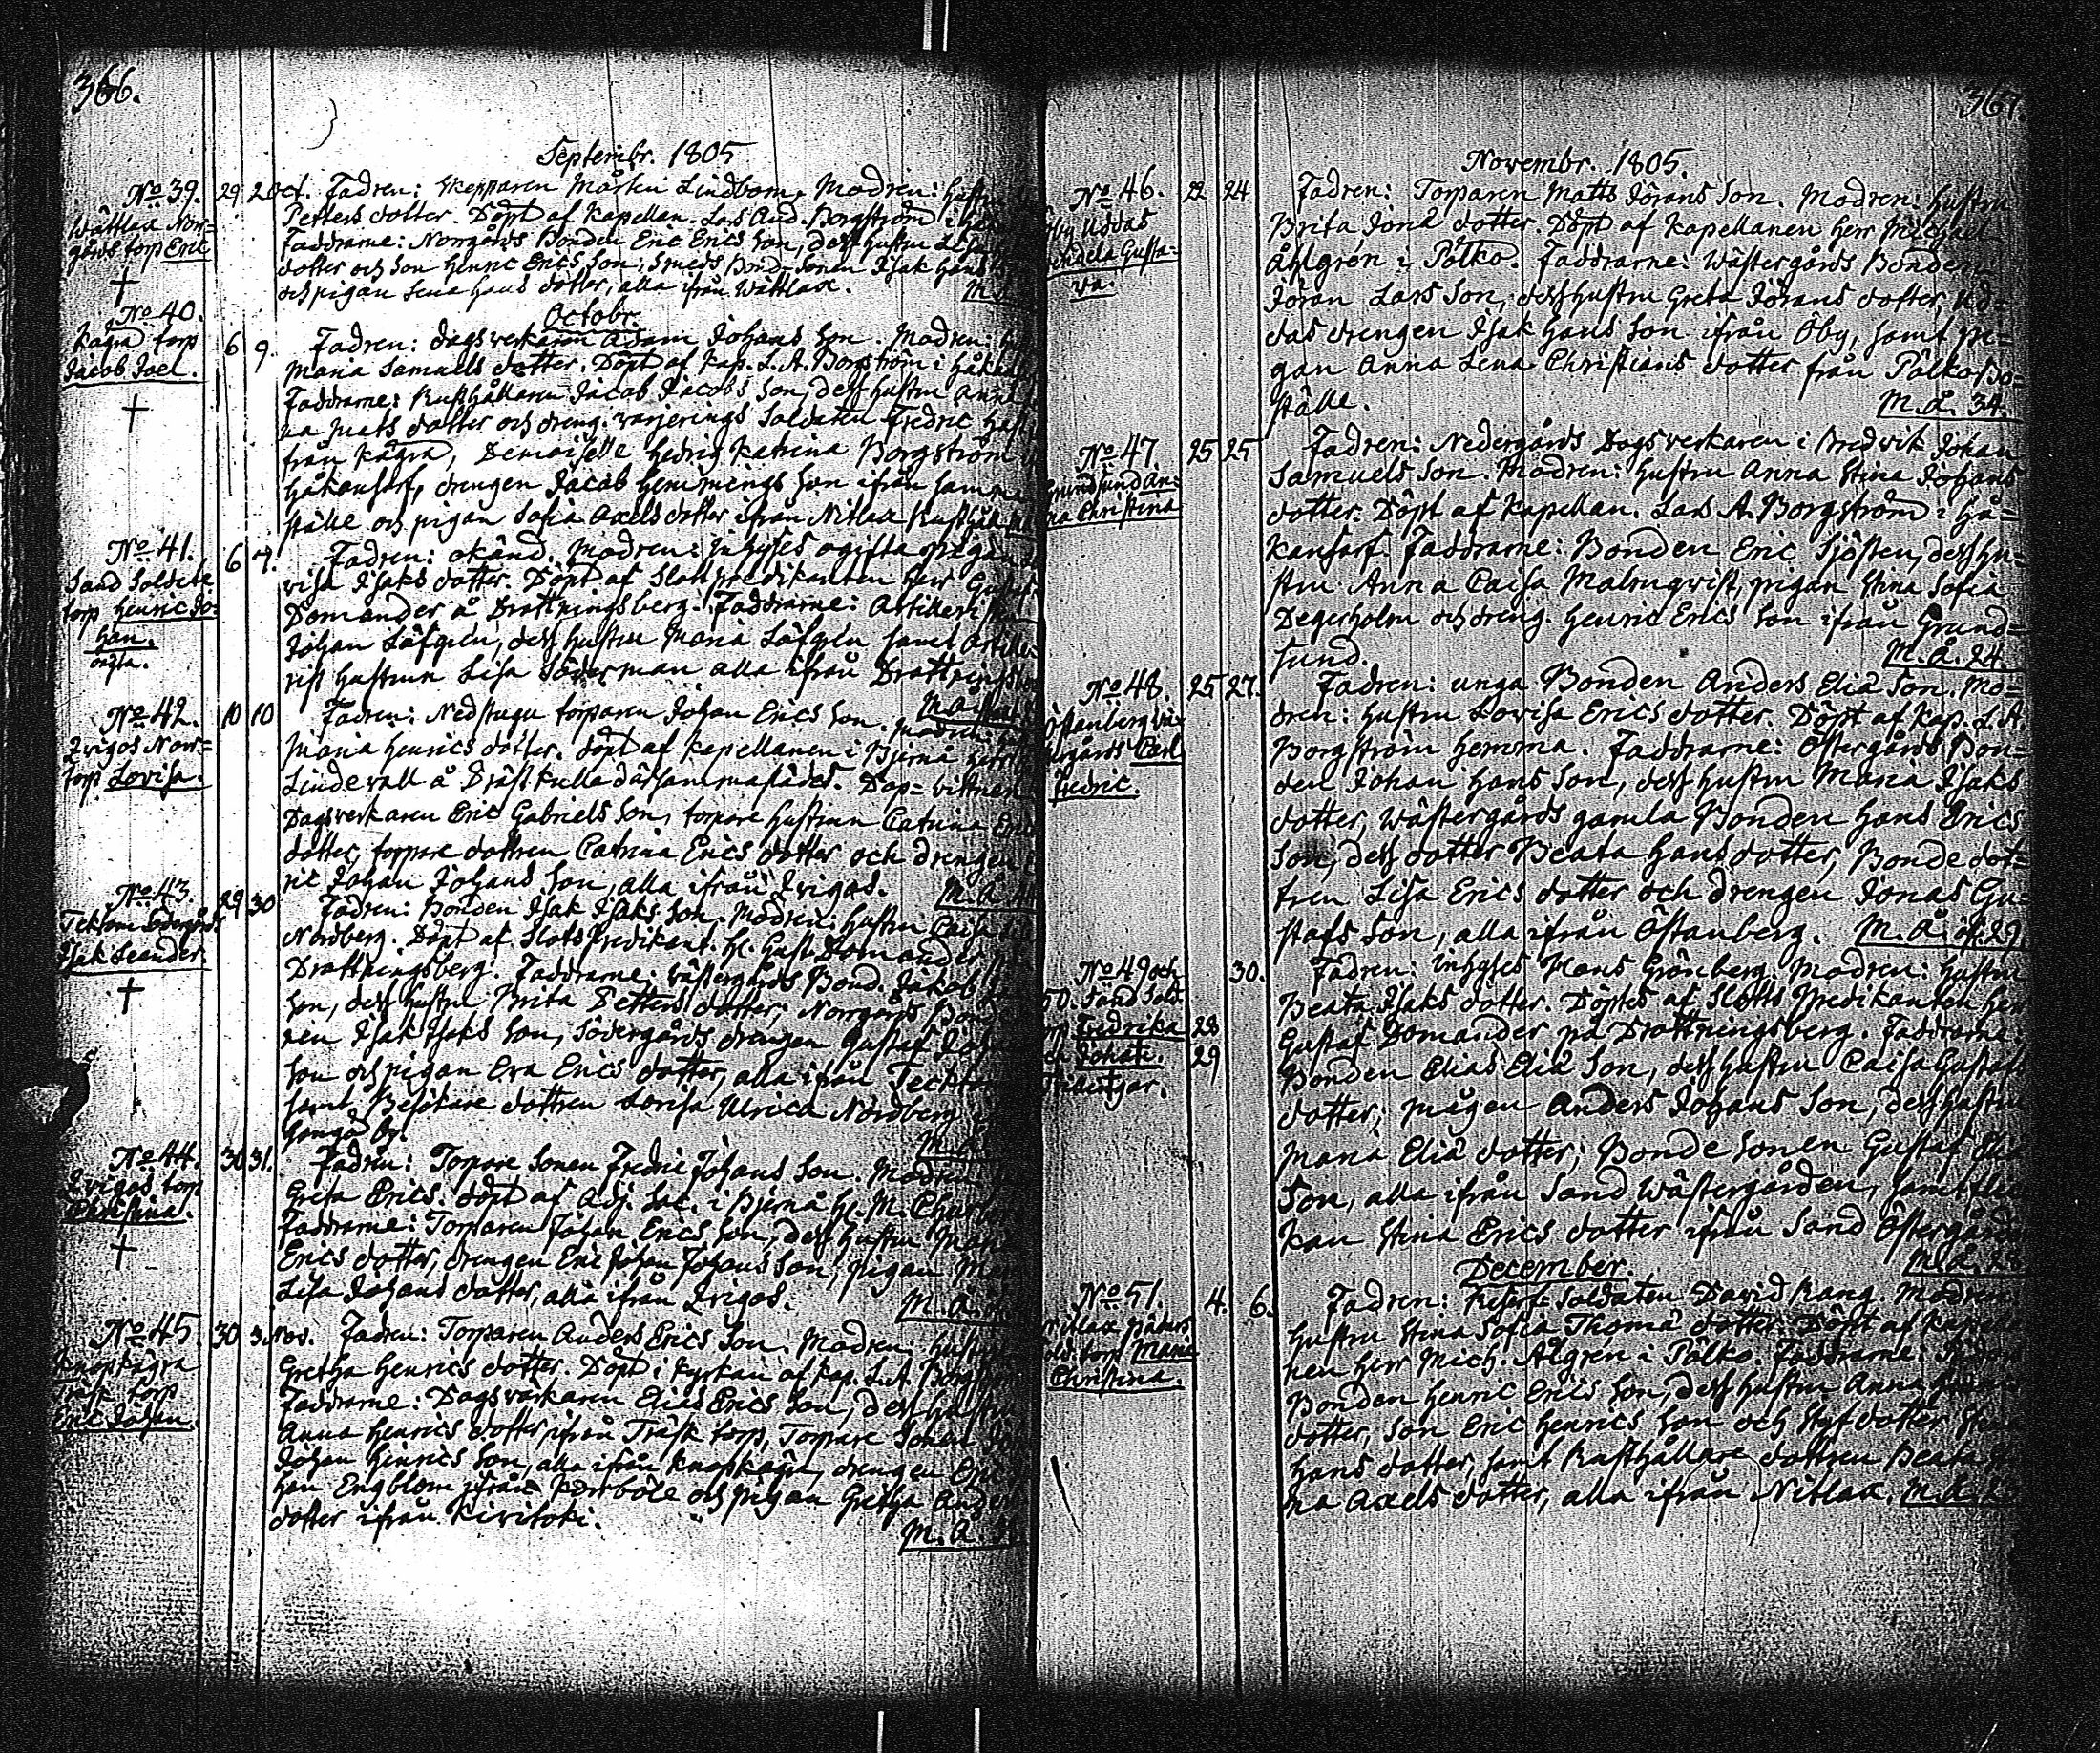 366.
Septembr. 1805
No 39. 29 2 Oct. Fadren: Skepparen Mårten Lindbom. Modren: hustru
Wättlax Nor=
gårds torp Eric
†
Petters dotter. Döpt af Kapellan. Lars And. Borgström i
Faddrarne: Norrgårds Bonden Eric Erics son, dess hustru Lisa
dotter och son Henric Erics son, Smeds Bonde sonen Isak Hans
och pigan Lena Hans dotter, alla ifrån Wättlax.
Octobr.
No 40.
Kågra torp
Jacob Joel.
†
6 9. Fadren: dagsverkaren Adam Johans son. Modren:
Maria Samuels dotter. Döpt af Kap. L. A. Borgström i Håkan
Faddrarne: Rusthållaren Jacob Jacobs son, dess hustru Anna
na Mats dotter och dreng. varjerings Soldaten Fredric
från Kågra, Demoiselle Hedvig Katrina Borgström
Håkansarf, drengen Jacob Hemmings son ifrån samma
ställe och pigan Sofia Axels dotter ifrån Nitlax Rusthåll
No 41.
Sand Soldate
torp Henric Jo=
han.
oägta.
6 7. Fadren: okänd. Modren: Inhyses ogifta pigan
visa Isaks dotter. Döpt af Slottspredikanten Herr Gustaf
Domander å Drottningsberg. Faddrarne: Artilleri
Johan Löfgren, dess hustru Maria Löfgren samt Artille=
rist hustrun Lisa Söderman alla ifrån Drottningsberg
No 42.
Trigos Norr=
torp Lovisa.
10 10 Fadren: Nedstugu torparen Johan Erics son. Modren:
Maria Henrics dotter. döpt af Kapellanen i Bjernå Herr
Lindevall å Präst kulla därsammastädes. Dop=vittnen
Dagsverkaren Eric Gabriels son, torpare hustrun Catrina Erics
dotter, torpare dottren Catrina Erics dotter och drengen
ric Johan Johans son, alla ifrån Trigos.
No 43.
Tecktom Södergårds
Isak Leander.
†
29 30 Fadren: Bonden Isak Isaks son. Modren: hustru Caisa
Nordberg. Döpt af Slots Predikant. H. Gust Domander
Drottningsberg. Faddrarne: Wästergårds Bond. Jakob
son, dess hustru Brita Petters dotter, Norrgårds Bonde
nen Isak Isaks son, Södergårds drengen Gustaf
son och pigan Eva Erics dotter, alla ifrån Tecktom
samt Besökare dottren Lovisa Ulrica Nordberg
by.
No 44.
Trigos torp
Christina.
†
30 31. Fadren: Torpare sonen Fredric Johans son. Modren
Greta Erics. döpt af Adj. Sac. i Bjernå H. M.
Faddrarne: Torparen Johan Erics son, dess hustru Maria
Erics dotter, drengen Eric Johan Johans son, pigan
Lisa Johans dotter, alla ifrån Trigos.
No 45
Knapkågra
Träsk torp
Eric Johan.
30 3. Nov. Fadren: Torparen Anders Erics son. Modren: hustru
Gretha Henrics dotter. Döpt i Kyrkan af Kap. L. A. Borgström
Faddrarne: Dagsvärkaren Elias Erics son, dess hustru
Anna Henrics dotter, ifrån Träsk torp, Torpare sonen
Johan Henrics son, alla ifrån Knapkågra, drengen Eric
han Engblom ifrån och pigan Gretha Anders
dotter ifrån Kivitoki.
367.
Novembr. 1805.
No 46.
Öby Uddas
Gusta=
va.
22 24 Fadren: Torparen Matts Jörans son. Modren: hustru
Brita Jona dotter. Döpt af Kapellanen Herr Michael
Åhlgren i Pålko. Faddrarne: Wästergårds Bonden
Jöran Lars son, dess hustru Greta Jörans dotter, Ud=
das drengen Isak Hans son ifrån Öby, samt pi=
gan Anna Lena Christians dotter från Pålko Bo=
ställe.
M. Å. 34.
No 47
Grundsund An=
na Christina
25 25 Fadren: Nedergårds Dagsverkaren i Bredvik Johan
Samuels son. Modren: hustru Anna Stina Johans
dotter. Döpt af Kapellan. Lars A. Borgström i Hå=
kansarf. Faddrarne: Bonden Eric Sjösten, dess hu=
stru Anna Caisa Malmqvist, pigan Stina Sofia
Degerholm och dreng. Henric Erics son ifrån Grund=
sund.
M. Å. 24.
No 48.
Östanberg Wä=
stergårds Carl
Fredric.
25 27. Fadren: unga Bonden Anders Eliä son. Mo=
dren: hustru Lovisa Erics dotter. Döpt af Kap. L. A.
Borgström hemma. Faddrarne: Östergårds Bon=
den Johan Hans son, dess hustru Maria Isaks
dotter, Wästergårds gamla Bonden Hans Erics
son, dess dotter Beata Hans dotter, Bonde dot=
tren Lisa Erics dotter och drengen Jonas Gu=
stafs son, alla ifrån Östanberg. M. Å. öf. 29.
No 49 och
50. Sand Sold.
torp Fredrika 28
och Johan. 29
30. Fadren: inhyses Hans Grönberg. Modren: hustru
Beata Isaks dotter. Döptes af Slotts Predikanten Herr
Gustaf Domander på Drottningsberg. Faddrarne:
Bonden Elias Eliä son, dess hustru Caisa Gustafs
dotter; mågen Anders Johans son, dess hustru
Maria Eliä dotter; Bonde sonen Gustaf Eliä
son, alla ifrån Sand Wästergården, samt flic
kan Stina Erics dotter ifrån Sand Östergård
December.
No 51.
Nitlax
torp Maria
Christina.
4. 6. Fadren: Reserf Soldaten David Rang. Modren
hustru Stina Sofia Thomä dotter. Döpt af Kapella
nen Herr Mich. Ålgren i Pålko. Faddrarne:
Bonden Henric Erics son, dess hustru Anna
dotter, son Eric Henrics son och styfdotter Stina
Hans dotter, samt Rusthållare dottren Beata
na Axels dotter, alla ifrån Nitlax.